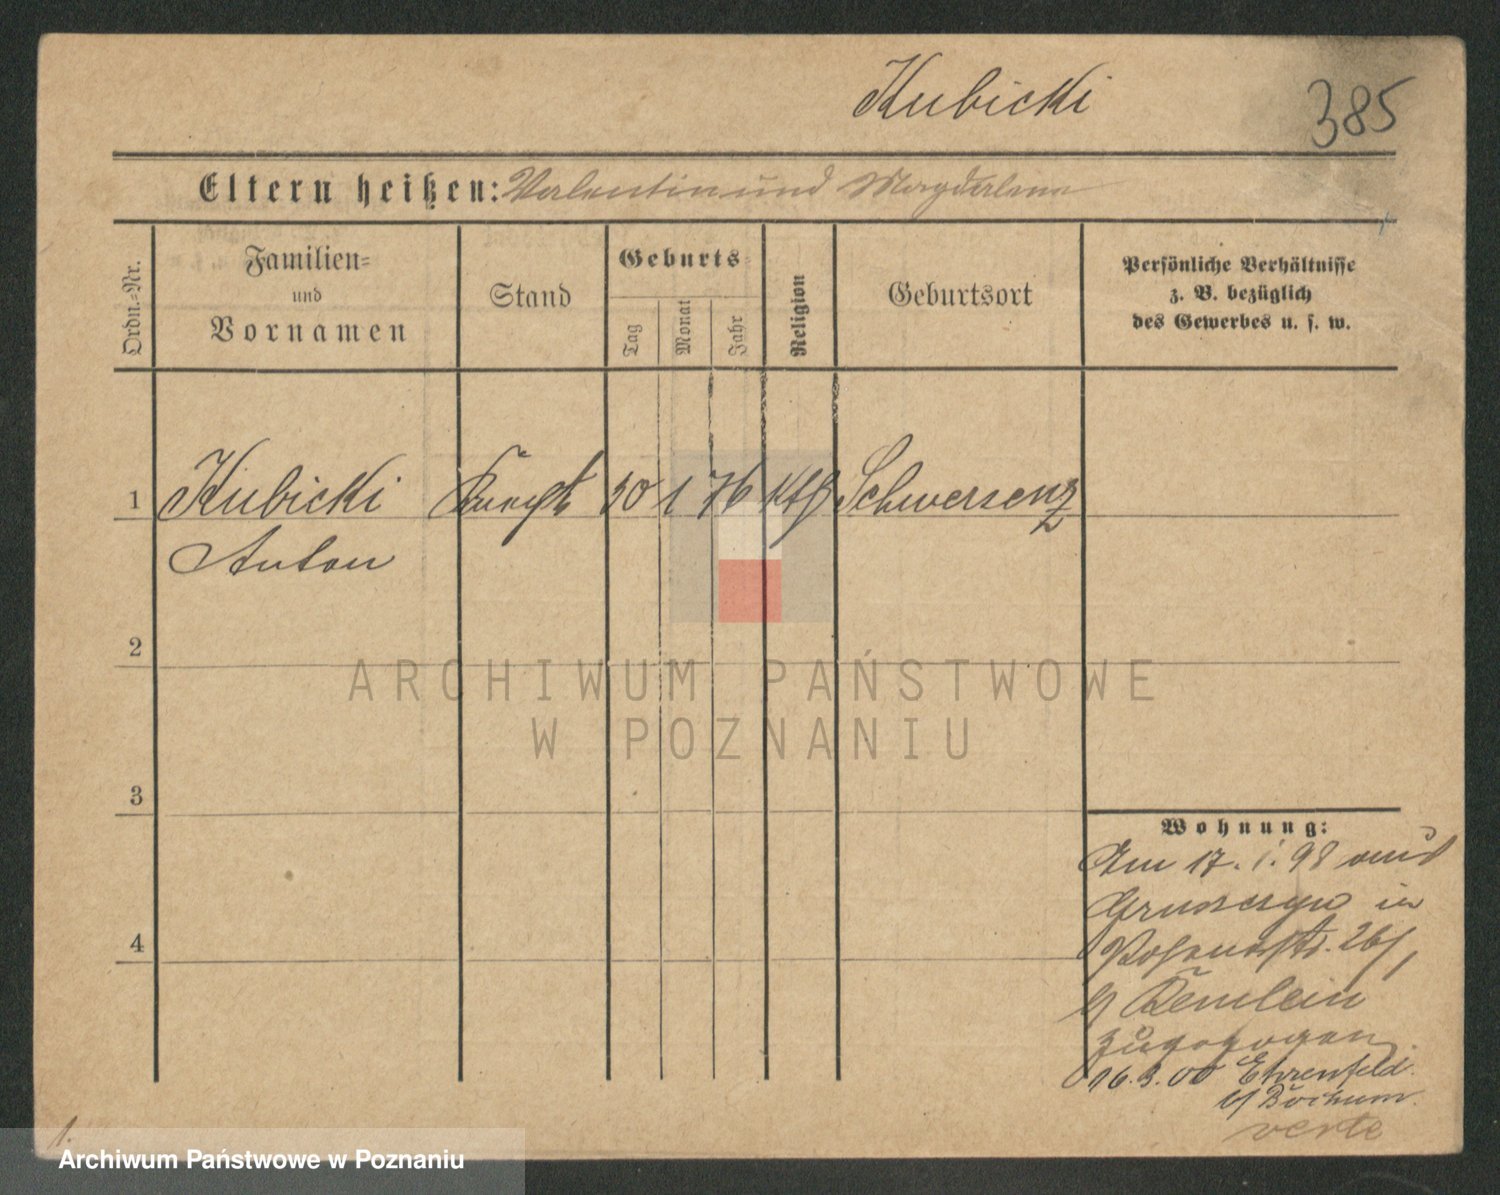 Kubicki
385
Eltern heißen: Valentin und Magdalena
Ordn.=Nr.
Familien=
und
Vornamen
Stand
Geburts=
Tag
Monat
Jahr
Religion
Geburtsort
Persönliche Verhältnisse
z. B. bezüglich
des Gewerbes u. s. w.
1 Kubicki Knecht 30 1 76 Kth Schwersenz
Anton
2
3
4
Wohnung:
Am 17. 1. 98 aus
in
Posenerstr. 26/1
b/
zugezogen.
16.3.00 Ehrenfeld
b/ Bochum.
verte
1.
ARCHIWUM PAŃSTWOWE
W POZNANIU
Archiwum Państwowe w Poznaniu